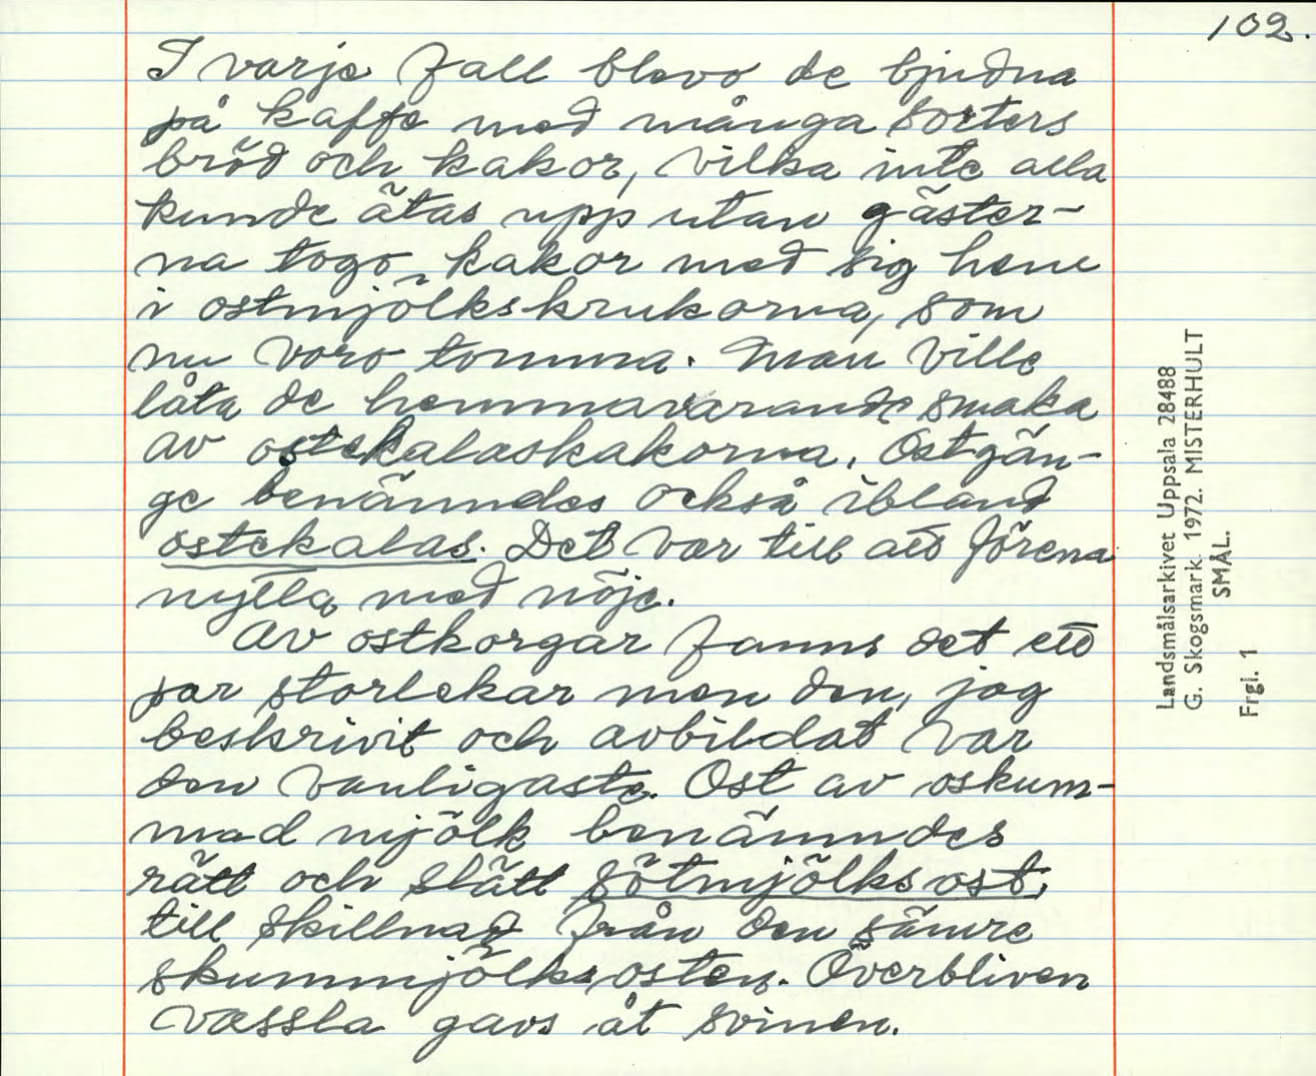 102.
I varje fall blevo de bjudna
på kaffe med många sorters
bröd och kakor, vilka inte alla
kunde ätas upp utan gäster-
na togo kakor med sig hem
i ostmjölkskrukorna, som
nu voro tomma. Man ville
låta de hemmavarande smaka
av ostekalaskakorna. Ostgän-
ge benämndes också ibland
ostekalas. Det var till att förena
nytta med nöje.
Av ostkorgar fanns det ett
par storlekar men den, jag
beskrivit och avbildat var
den vanligaste. Ost av oskum-
mad mjölk benämndes
rätt och slätt sötmjölksost,
till skillnad från den sämre
skummjölksosten. Överbliven
vassla gavs åt svinen.
Landsmålsarkivet Uppsala 28488
G. Skogsmark. 1972. MISTERHULT
SMÅL.
Frgl. 1